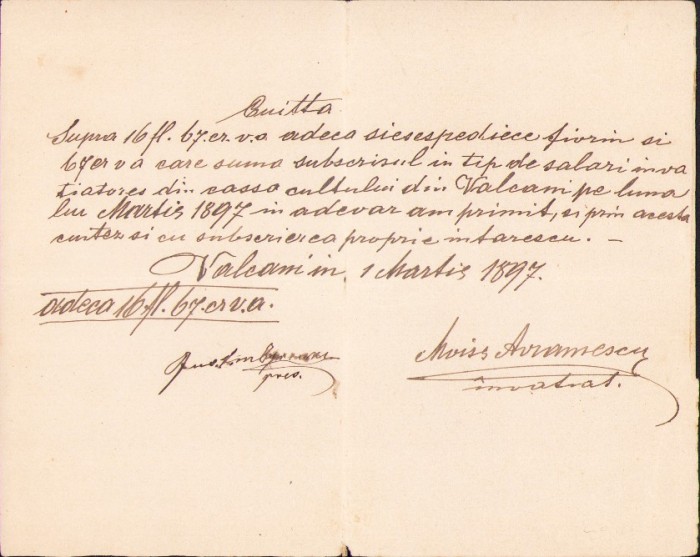 Cuitta
Supra 16 fl. 67. cr. v. a adeca siesespediece fiorin si
67 cr v a care suma subscrisul in tip de salari inva
tiatores din cassa cultului din Valcani pe luna
lui Martis 1897 in adevar am primit, si prin acesta
cuitez si cu subscrierea proprie intarescu. –
Valcani in, 1 Martis 1897.
adeca 16 fl. 67. cr v. a.
Moiss Avramescu
pres.
invatiat.